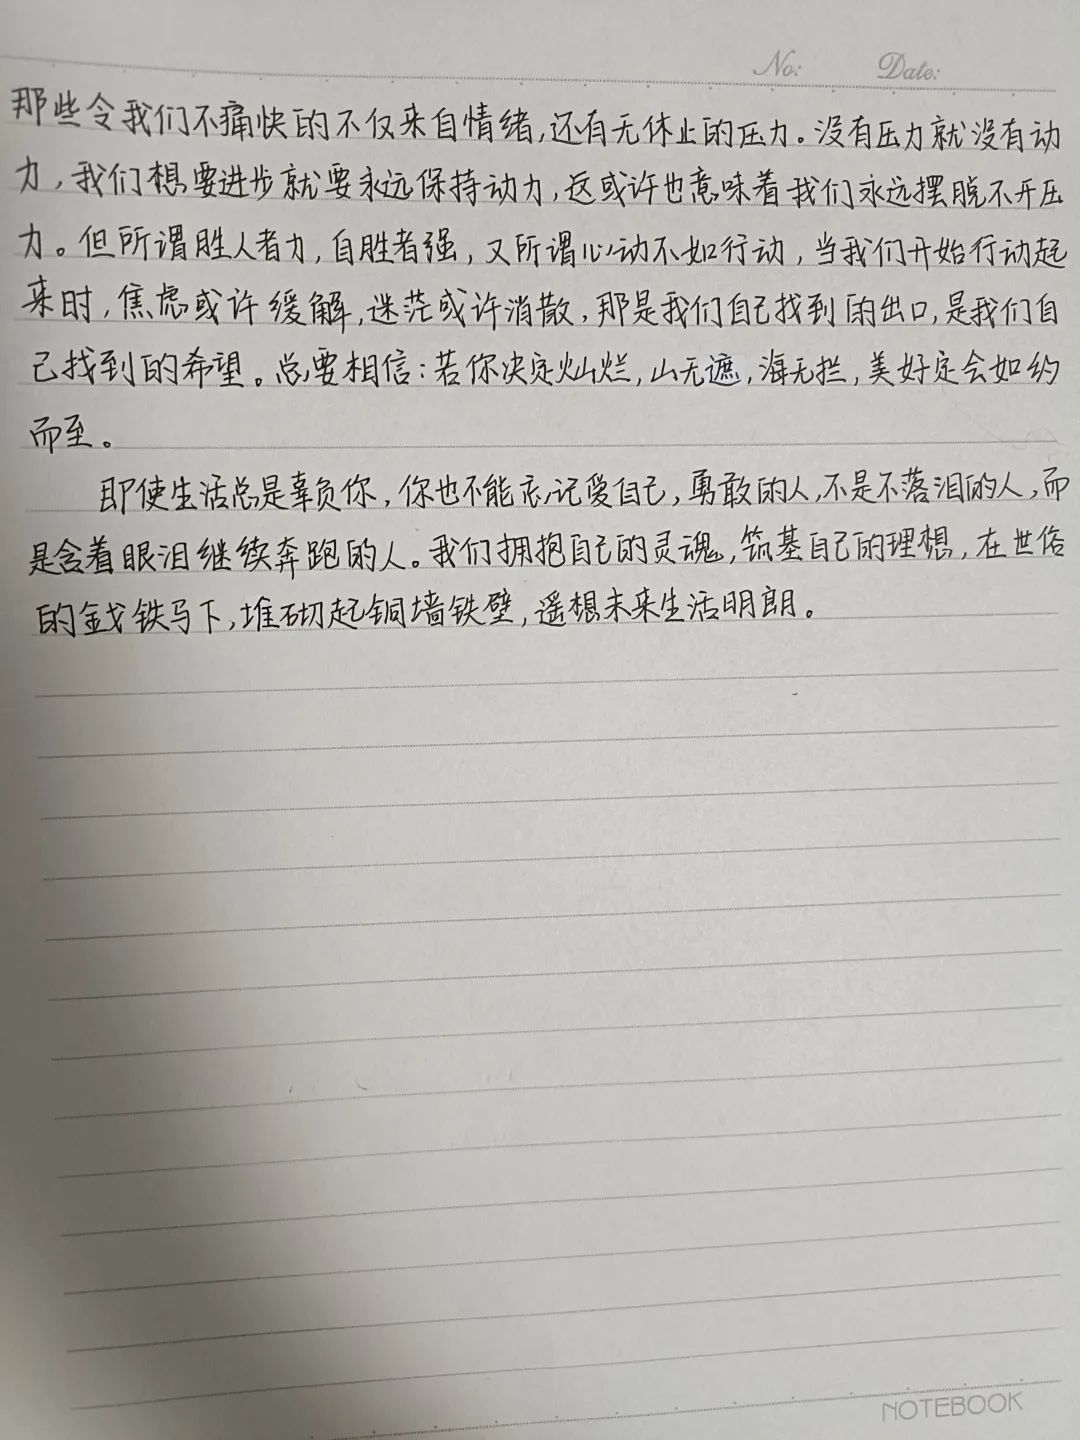 No: Date:
那些令我们不痛快的不仅来自情绪,还有无休止的压力。没有压力就没有动
力,我们想要进步就要永远保持动力,这或许也意味着我们永远摆脱不开压
力。但所谓胜人者力,自胜者强,又所谓心动不如行动,当我们开始行动起
来时,焦虑或许缓解,迷茫或许消散,那是我们自己找到的出口,是我们自
己找到的希望。总要相信:若你决定灿烂,山无遮,海无拦,美好定会如约
而至。
即使生活总是辜负你,你也不能忘记爱自己,勇敢的人,不是不落泪的人,而
是含着眼泪继续奔跑的人。我们拥抱自己的灵魂,筑基自己的理想,在世俗
的铁马下,堆砌起铜墙铁壁,遥想未来生活明朗。
NOTEBOOK